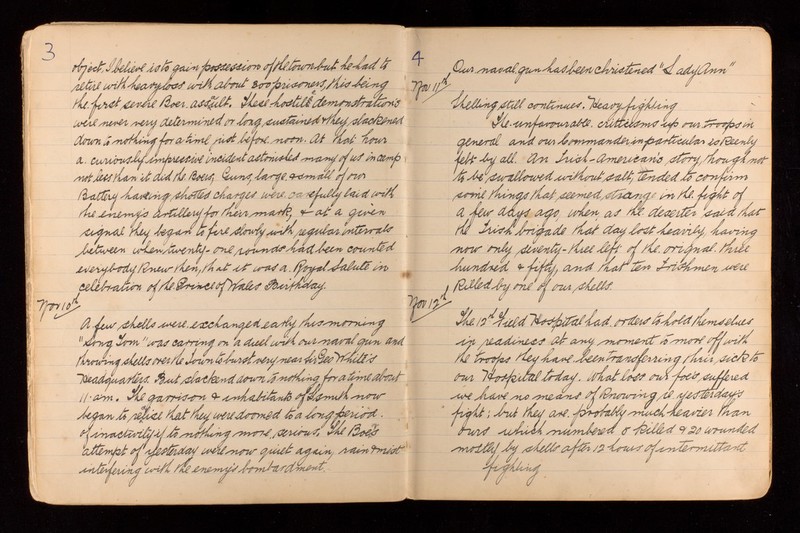 3
object, I believe is to gain possession of the town but he had to
retire with heavy loss with about 300 prisoners, this being
the first severe Boer assault. These hostile demonstrations
were never very determined or long sustained & they slackened
down to nothing for a time just before noon. At that hour
a curiously impressive incident astonished many of us in camp
not less than it did the Boers, Guns, large & small of our
Battery having shotted charges were carefully laid with
the enemy's artillery for their mark, & at a given
signal they began to fire slowly with regular intervals
between when twenty-one rounds had been counted
everybody knew then, that it was a Royal Salute in
celebration of the Prince of Wales Birthday.
Nov 10th
A few shells were exchanged early this morning
"Long Tom" was carring on a duel with our naval gun and
throwing shells over the town to burst very near Sir Geo White's
Headquarters. But slackend down to nothing for a time about
11 a.m. The garrison & inhabitants of Lsmith now
began to relise that they were doomed to a long period
of inactivity if to nothing more serious. The Boers
attempt of yesterday were now quiet again, rain & mist
interfering with the enemy's bombardment.
4
Our naval gun has been christened "Lady Ann"
Nov 11th
Shelling still continues. Heavy fighting
The unfavourable criticisms up our troops in
general and our Commander in particular is keenly
felt by all. An Irish-American's story, though not
to be swallowed without salt, tended to confirm
some things that seemed strange in the fight of
a few days ago, when, as the deserter said that
the Irish brigade that day lost heavily, having
now only seventy-three left of the orignal three
hundred & fifty, and that ten Irishmen were
killed by one of our shells.
Nov 12th
The 12th Field Hospital had orders to hold themselves
in readiness at any moment to move off with
the troops they have been transferring their sick to
our Hospital today. What loss our foes suffered
we have no means of knowing ie yesterday's
fight; but they are probably much heavier than
ours which numbered 8 killed & 20 wounded
mostly by shells after 12 hours of intermittant
fighling